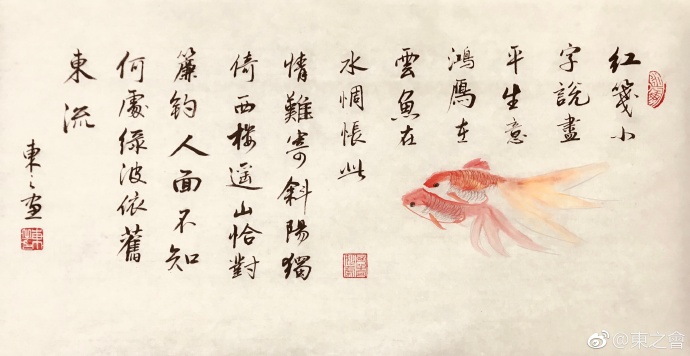 红箋小
字說盡
平生意
鴻鴈在
雲魚在
水惆悵此
情難寄斜陽獨
倚西樓遥山恰對
簾鈎人面不知
何處綠波依舊
東流
東之画
@東之會